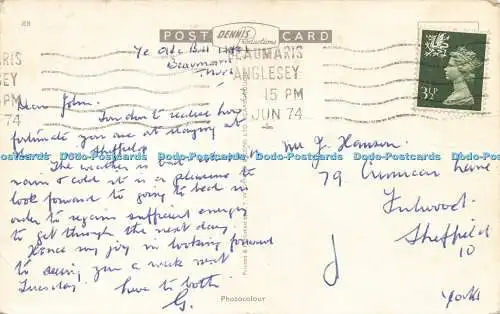 JRB
POST DENNIS Productions CARD
Ye Olde Bull
Beaumaris
BEAUMARIS
ANGLESEY
15 PM
JUN 74
3½P
Dear John,
You don't realise how
fortunate you are at staying at
home in Sheffield
The weather is bad
rain & cold it is a pleasure to
look forward to going to bed in
order to regain sufficient energy
to get through the next day.
Hence my joy in looking forward
to seeing you a week next
Tuesday
love to both
G.
Mr J. Hanson
79 Crimicar Lane
Fulwood
Sheffield
10
Yorks
Photocolour
Dodo-Postcards Dodo-Postcards Dodo-Postcards Dodo-Postcards